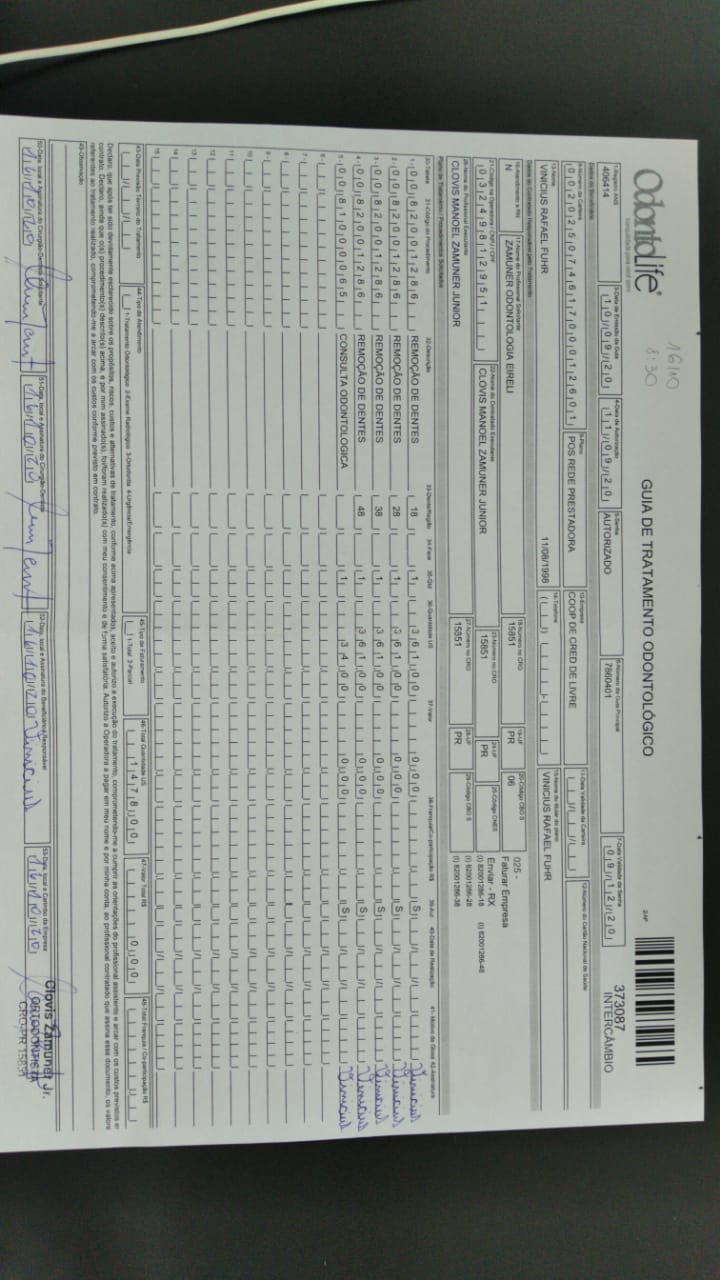 16/10
8:30
OdontoLife®
GUIA DE TRATAMENTO ODONTOLÓGICO
2-Nº
373087
INTERCÂMBIO
1-Registro ANS
406414
3-Data de Emissão da Guia
10/09/20
4-Data de Autorização
11/09/20
5-Senha
AUTORIZADO
6-Número da Guia Principal
7860401
7-Data Validade da Senha
09/12/20
Dados do Beneficiário
8-Número da Carteira
00202507461700012601
9-Plano
POS REDE PRESTADORA
10-Empresa
COOP DE CRED DE LIVRE
11-Data Validade da Carteira
12-Número do Cartão Nacional de Saúde
13-Nome
VINICIUS RAFAEL FUHR
11/08/1998
14-Telefone
15-Nome do titular do plano
VINICIUS RAFAEL FUHR
Dados do Contratado Responsável pelo Tratamento
16-Atendimento a RN
N
17-Nome do Profissional Solicitante
ZAMUNER ODONTOLOGIA EIRELI
18-Número no CRO
15851
19-UF
PR
20-Código CBO S
06
025 -
Faturar Empresa
Enviar - RX
(I) 82001286-18 (I) 82001286-48
(I) 82001286-28
(I) 82001286-38
21-Código na Operadora / CNPJ / CPF
03249812951
22-Nome do Contratado Executante
CLOVIS MANOEL ZAMUNER JUNIOR
23-Número no CRO
15851
24-UF
PR
25-Código CNES
26-Nome do Profissional Executante
CLOVIS MANOEL ZAMUNER JUNIOR
27-Número no CRO
15851
28-UF
PR
29-Código CBO S
Plano de Tratamento / Procedimentos Solicitados
30-Tabela 31-Código do Procedimento 32-Descrição 33-Dente/Região 34-Face 35-Qtd 36-Quantidade US 37-Valor 38-Franquia/Co-participação R$ 39-Aut 40-Data de Realização 41-Motivo da Glosa 42-Assinatura
1- 00 82001286 REMOÇÃO DE DENTES 18 1 361 00 0 00 S Vinicius
2- 00 82001286 REMOÇÃO DE DENTES 28 1 361 00 0 00 S Vinicius
3- 00 82001286 REMOÇÃO DE DENTES 38 1 361 00 0 00 S Vinicius
4- 00 82001286 REMOÇÃO DE DENTES 48 1 361 00 0 00 S Vinicius
5- 00 81000065 CONSULTA ODONTOLOGICA 1 34 00 0 00 S Vinicius
6-
7-
8-
9-
10-
11-
12-
13-
14-
15-
43-Data Previsão Término do Tratamento
44-Tipo de Atendimento
1-Tratamento Odontológico 2-Exame Radiológico 3-Ortodontia 4-Urgência/Emergência
45-Tipo de Faturamento
1-Total 2-Parcial
46-Total Quantidade US
1478 00
47-Valor Total R$
0 00
48-Total Franquia / Co-participação R$
Declaro, que após ter sido devidamente esclarecido sobre os propósitos, riscos, custos e alternativas de tratamento, conforme acima apresentados, aceito e autorizo a execução do tratamento, comprometendo-me a cumprir as orientações do profissional assistente e arcar com os custos previstos em
contrato. Declaro, ainda que o(s) procedimento(s) descrito(s) acima, e por mim assinado(s), foi/foram realizado(s) com meu consentimento e de forma satisfatória. Autorizo a Operadora a pagar em meu nome e por minha conta, ao profissional contratado que assina esse documento, os valores
referentes ao tratamento realizado, comprometendo-me a arcar com os custos conforme previsto em contrato.
49-Observação
50-Data, local e Assinatura do Cirurgião-Dentista Solicitante
16/10/20
51-Data, local e Assinatura do Cirurgião-Dentista
16/10/20
52-Data, local e Assinatura do Beneficiário/Responsável
16/10/20 Vinicius
53-Data, local e Carimbo da Empresa
16/10/20
Clovis Zamuner Jr.
ORTODONTISTA
CRO-PR 15851